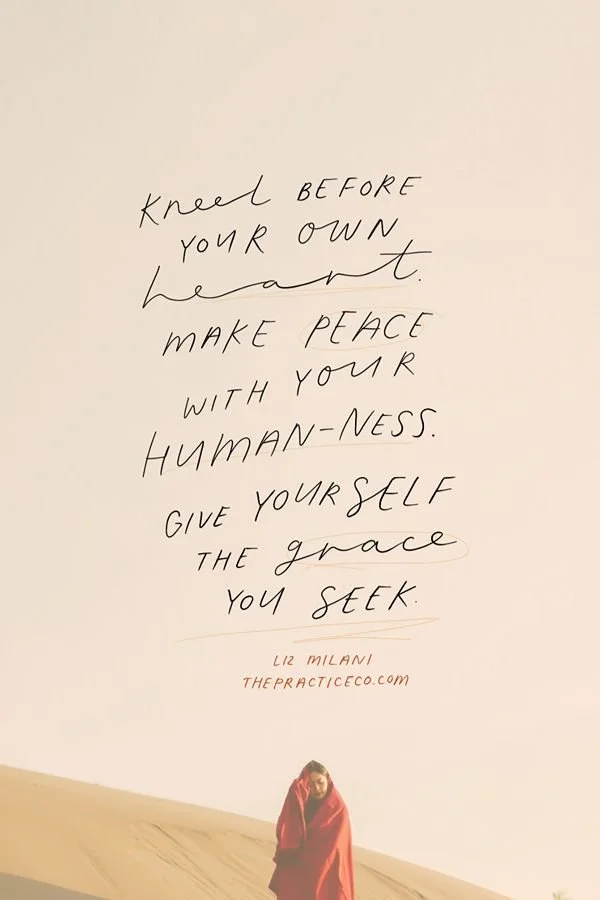 Kneel BEFORE
YOUR OWN
heart.
MAKE PEACE
WITH YOUR
HUMAN-NESS.
GIVE YOURSELF
THE grace
YOU SEEK.
LIZ MILANI
THEPRACTICECO.COM